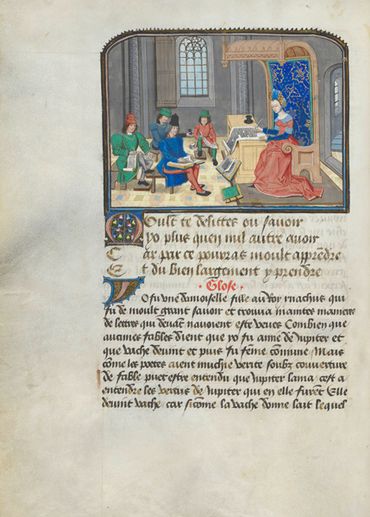 Moult te delittes ou savoir
Yo plus quen mil autre avoir
Car par ce pourras moult apprendre
Et du bien largement y prendre
Glose
Yo fu une damoiselle fille au roy ynachus qui
fu de moult grant savoir et trouva maintes manieres
de lettres qui devant navoient este veues Combien que
aucunes fables dient que yo fu amie de Jupiter et
que vache devint et puis fu feme commune Mais
come les poetes aient muchie verite soubz couverture
de fable puet estre entendu que Jupiter lama cest a
entendre les vertus de Jupiter qui en elle furent Elle
devint vache car sicome la vache donne lait lequel